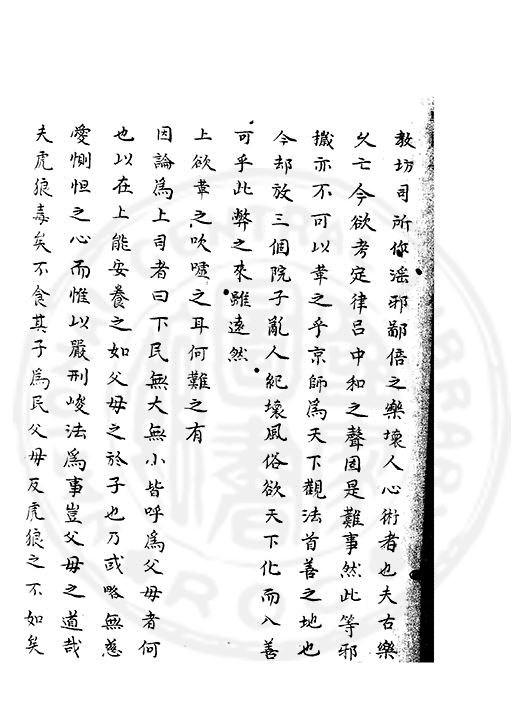 教坊司所作淫邪鄙倍之樂壞人心術者也夫古樂
久亡今欲考定律呂中和之聲固是難事然此等邪
穢亦不可以革之乎京師為天下觀法首善之地也
今却放三個院子亂人紀壞風俗欲天下化而入善
可乎此弊之來雖遠然
上欲革之吹噓之耳何難之有
因論為上司者曰下民無大無小皆呼為父母者何
也以在上能安養之如父母之於子也乃或略無慈
愛惻怛之心而惟以嚴刑峻法為事豈父母之道哉
夫虎狼毒矣不食其子為民父母反虎狼之不如矣